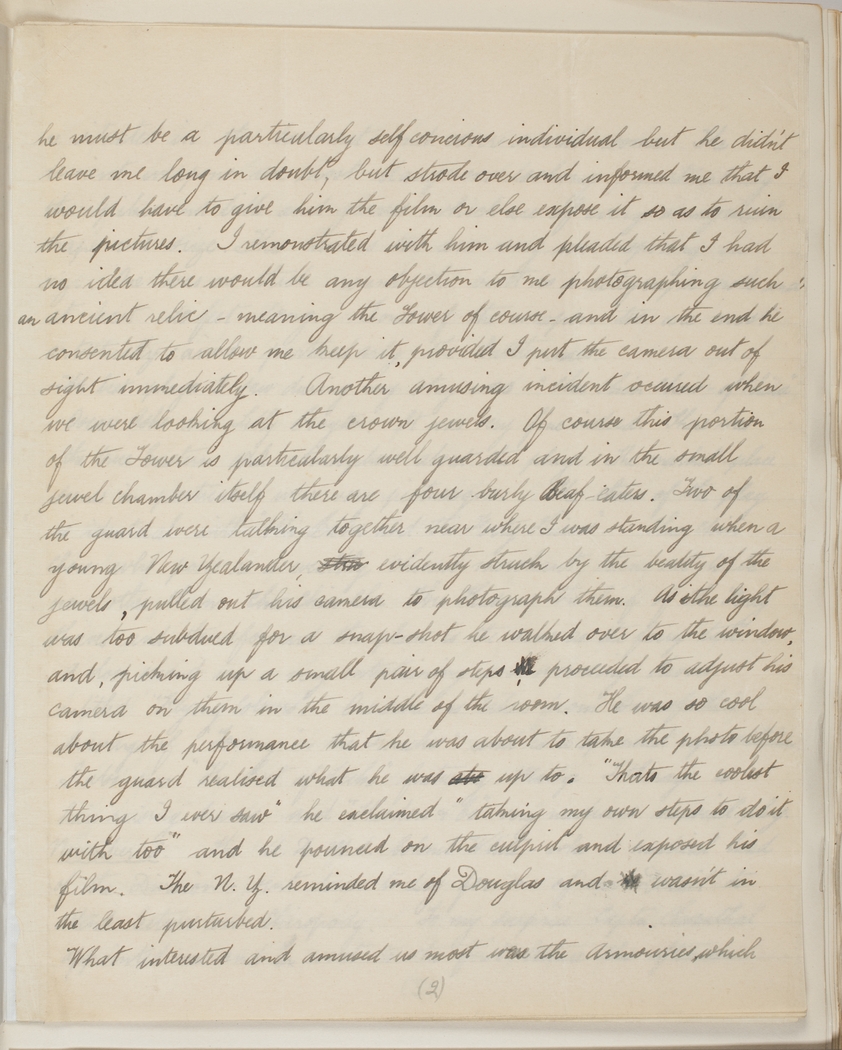 he must be a particularly selfconcious individual but he didn't
leave me long in doubt, but strode over and informed me that I
would have to give him the film or else expose it so as to ruin
the pictures. I remonstrated with him and pleaded that I had
no idea there would be any objection to me photographing such
an ancient relic - meaning the Tower of course - and in the end he
consented to allow me keep it, provided I put the camera out of
sight immediately. Another amusing incident occured when
we were looking at the crown jewels. Of course this portion
of the Tower is particularly well guarded and in the small
jewel chamber itself there are four burly Beaf-eaters. Two of
the guard were talking together near where I was standing when a
young New Zealander, evidently struck by the beality of the
jewels, pulled out his camera to photograph them. As the light
was too subdued for a snap-shot he walked over to the window,
and, picking up a small pair of steps, proceeded to adjust his
camera on them in the middle of the room. He was so cool
about the performance that he was about to take the photo before
the guard realised what he was up to. "Thats the coolest
thing I ever saw" he exclaimed "taking my own steps to do it
with too" and he pounced on the culprit and exposed his
film. The N.Z. reminded me of Douglas and wasn't in
the least purturbed.
What interested and amused us most was the Armouries, which
(2)